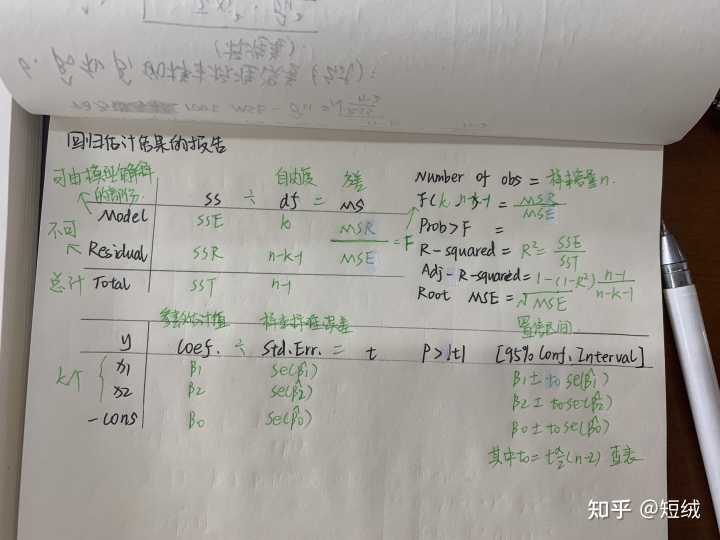 回归估计结果的报告
可由模型解释的部份. 自由度 方差
SS ÷ df = MS
Model SSE k MSR
不可 = F
Residual SSR n-k-1 MSE
总计 Total SST n-1
Number of obs = 样本容量 n.
F(k, n-k-1) = MSR/MSE
Prob>F =
R-squared = R² = SSE/SST
Adj-R-squared = 1-(1-R²) n-1/n-k-1
Root MSE = √MSE
参数估计值 样本标准误差 置信区间
y Coef. ÷ Std.Err. = t P>|t| [95% Conf. Interval]
k个 x1 β1 se(β̂1) β1 ± t0 se(β̂1)
x2 β2 se(β̂2) β2 ± t0 se(β̂2)
-cons β0 se(β̂0) β0 ± t0 se(β̂0)
其中t0 = tα/2 (n-2) 查表
知乎 @短绒